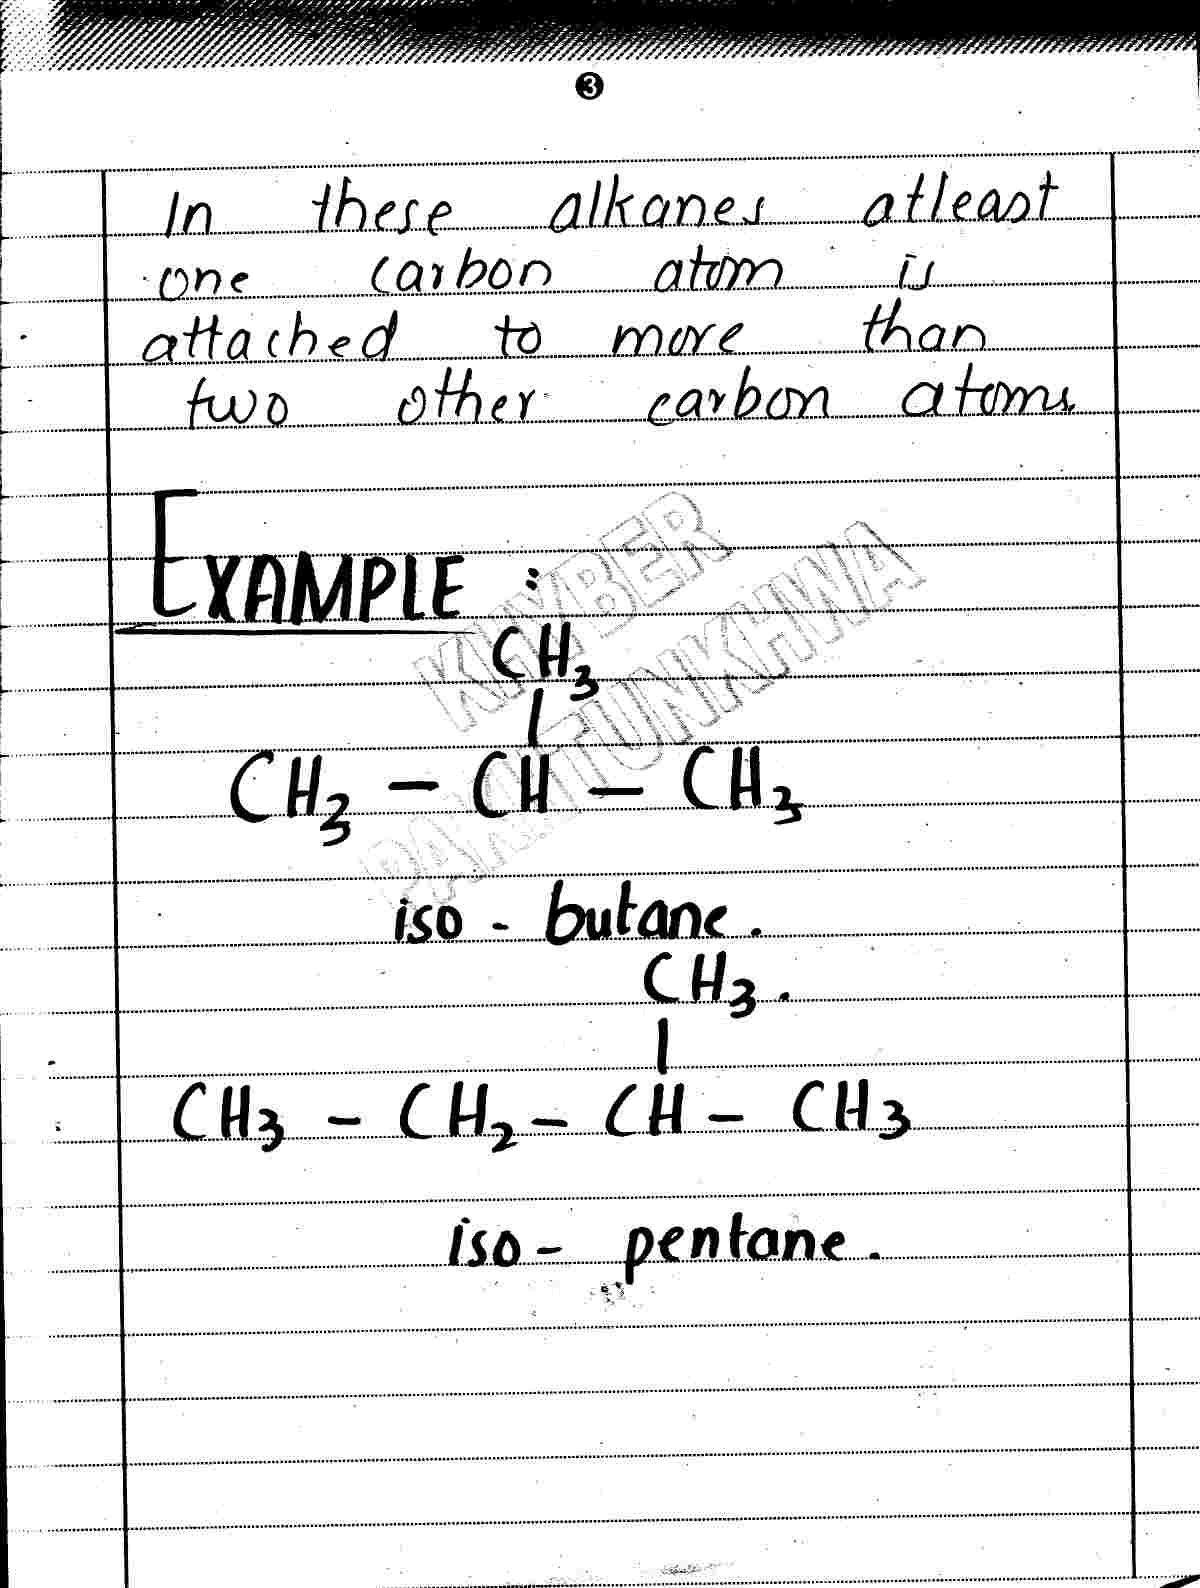 3
In these alkanes atleast
one carbon atom is
attached to more than
two other carbon atoms.
EXAMPLE :
CH3
|
CH3 - CH - CH3
iso - butane.
CH3.
|
CH3 - CH2 - CH - CH3
iso - pentane.
KHYBER
PAKHTUNKHWA